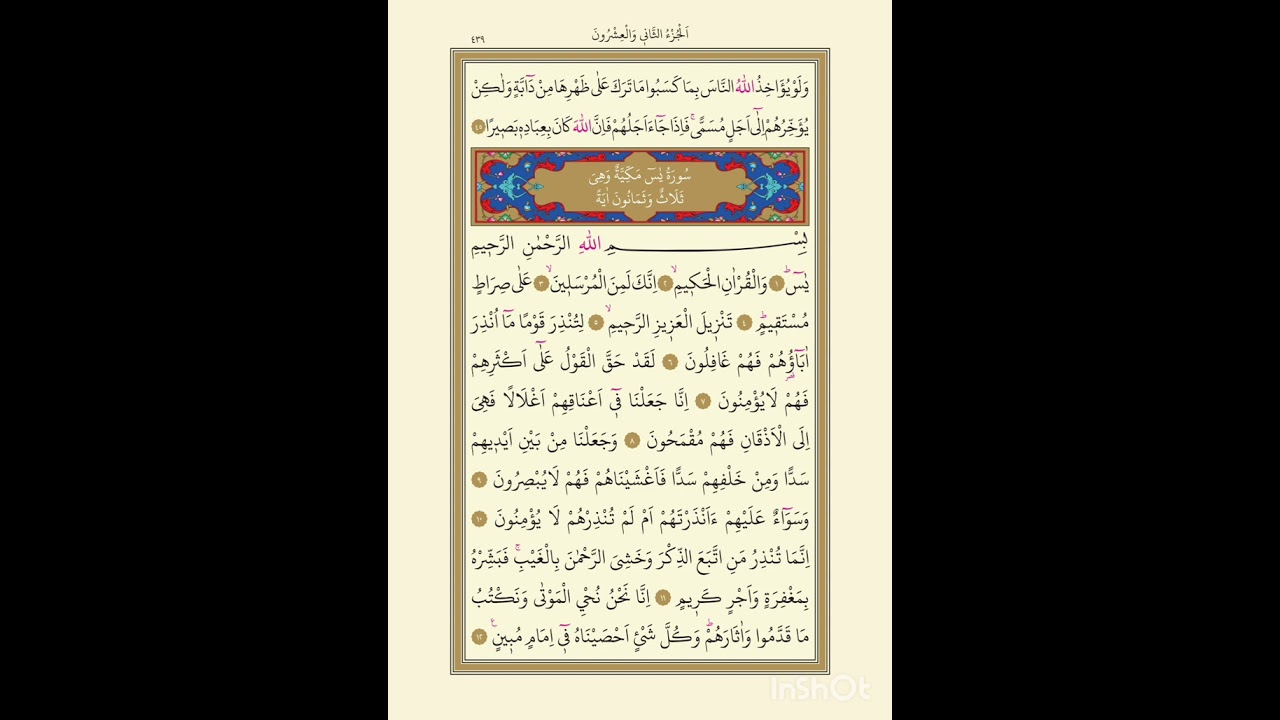 اَلْجُزْءُ الثَّانِي وَالْعِشْرُونَ
٤٣٩
وَلَوْ يُؤَاخِذُ اللّٰهُ النَّاسَ بِمَا كَسَبُوا مَا تَرَكَ عَلٰى ظَهْرِهَا مِنْ دَٓابَّةٍ وَلٰكِنْ
يُؤَخِّرُهُمْ اِلٰٓى اَجَلٍ مُسَمًّىۚ فَاِذَا جَٓاءَ اَجَلُهُمْ فَاِنَّ اللّٰهَ كَانَ بِعِبَادِهٖ بَصٖيرًا ٤٥
سُورَةُ يٰسٓ مَكِّيَّةٌ وَهِيَ
ثَلَاثٌ وَثَمَانُونَ اٰيَةً
بِسْمِ اللّٰهِ الرَّحْمٰنِ الرَّحٖيمِ
يٰسٓۜ ١ وَالْقُرْاٰنِ الْحَكٖيمِۙ ٢ اِنَّكَ لَمِنَ الْمُرْسَلٖينَۙ ٣ عَلٰى صِرَاطٍ
مُسْتَقٖيمٍۜ ٤ تَنْزٖيلَ الْعَزٖيزِ الرَّحٖيمِۙ ٥ لِتُنْذِرَ قَوْمًا مَٓا اُنْذِرَ
اٰبَٓاؤُ۬هُمْ فَهُمْ غَافِلُونَ ٦ لَقَدْ حَقَّ الْقَوْلُ عَلٰٓى اَكْثَرِهِمْ
فَهُمْ لَا يُؤْمِنُونَ ٧ اِنَّا جَعَلْنَا فٖٓي اَعْنَاقِهِمْ اَغْلَالًا فَهِيَ
اِلَى الْاَذْقَانِ فَهُمْ مُقْمَحُونَ ٨ وَجَعَلْنَا مِنْ بَيْنِ اَيْدٖيهِمْ
سَدًّا وَمِنْ خَلْفِهِمْ سَدًّا فَاَغْشَيْنَاهُمْ فَهُمْ لَا يُبْصِرُونَ ٩
وَسَوَٓاءٌ عَلَيْهِمْ ءَاَنْذَرْتَهُمْ اَمْ لَمْ تُنْذِرْهُمْ لَا يُؤْمِنُونَ ١٠
اِنَّمَا تُنْذِرُ مَنِ اتَّبَعَ الذِّكْرَ وَخَشِيَ الرَّحْمٰنَ بِالْغَيْبِۚ فَبَشِّرْهُ
بِمَغْفِرَةٍ وَاَجْرٍ كَرٖيمٍ ١١ اِنَّا نَحْنُ نُحْيِ الْمَوْتٰى وَنَكْتُبُ
مَا قَدَّمُوا وَاٰثَارَهُمْۜ وَكُلَّ شَيْءٍ اَحْصَيْنَاهُ فٖٓي اِمَامٍ مُبٖينٍ ١٢
InShOt